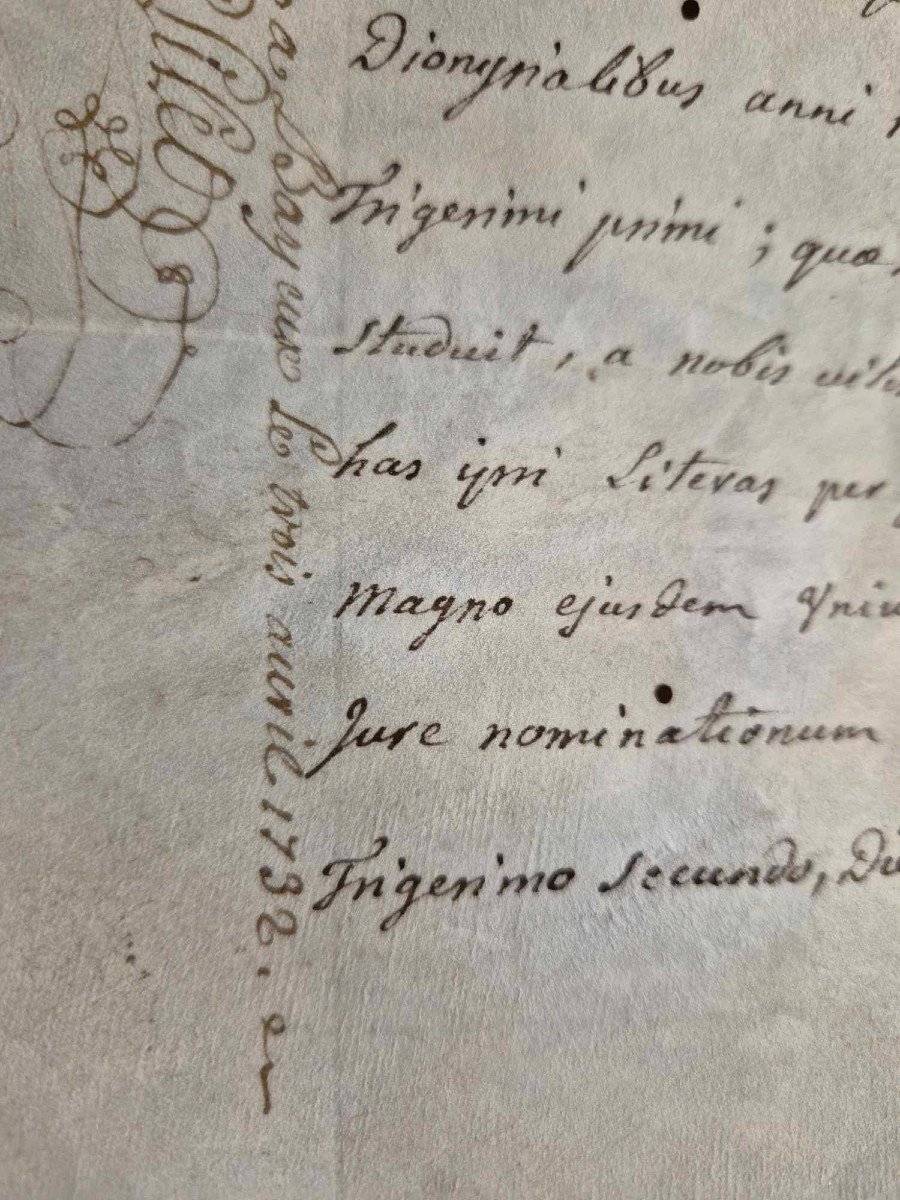 Dionysialibus anni
Trigesimi primi ; quæ
studuit, a nobis
has ipsi Literas per
Magno ejusdem
Jure nominationum
Trigesimo secundo,
a Bayeux le trois avril 1732.